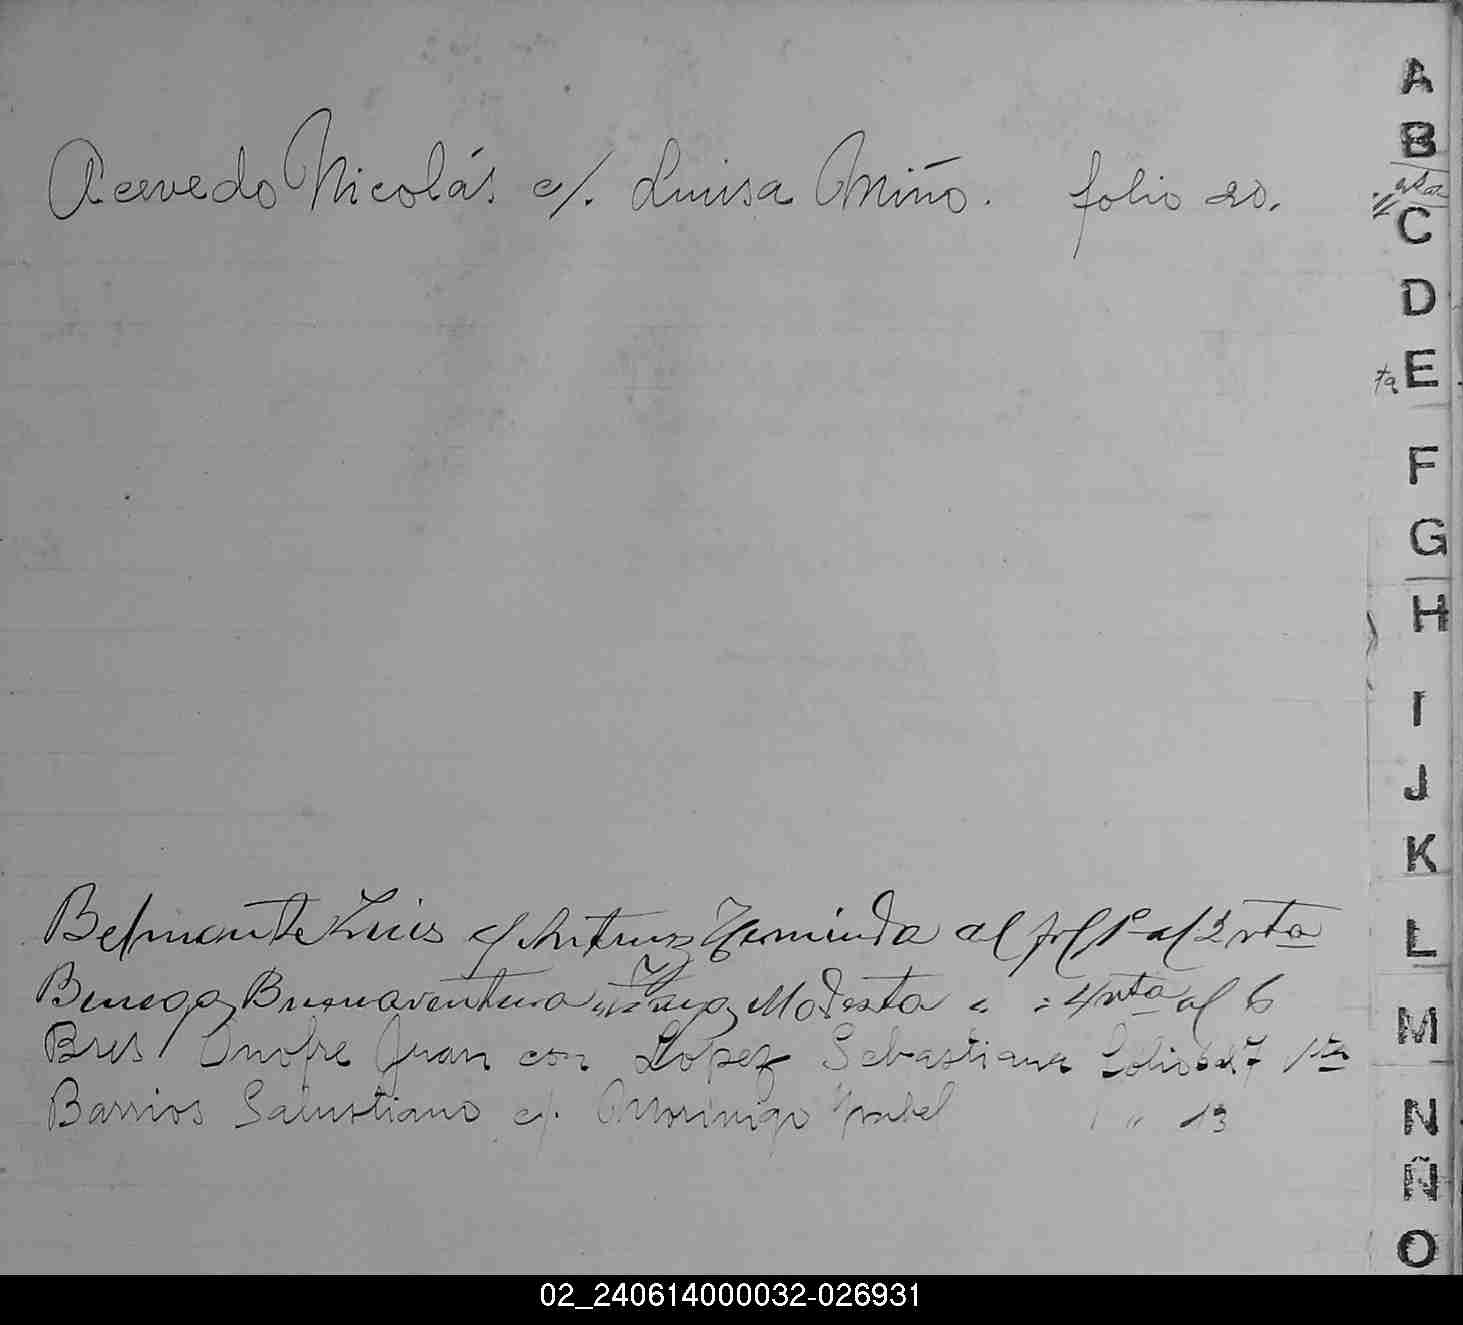 Acevedo Nicolás c/. Luisa Miño. folio 20.
Belmonte Luis c/ Herminda al fol 1º al 2 vta
Benega Buenaventura Modesta " " 4 vta al 6
Bres Onofre Juan con Lopez Sebastiana Folio 6 al 7 vta
Barrios Salustiano c/. Morinigo Ysabel " 13
A
B
vta
C
D
ta E
F
G
H
I
J
K
L
M
N
Ñ
O
02_240614000032-026931